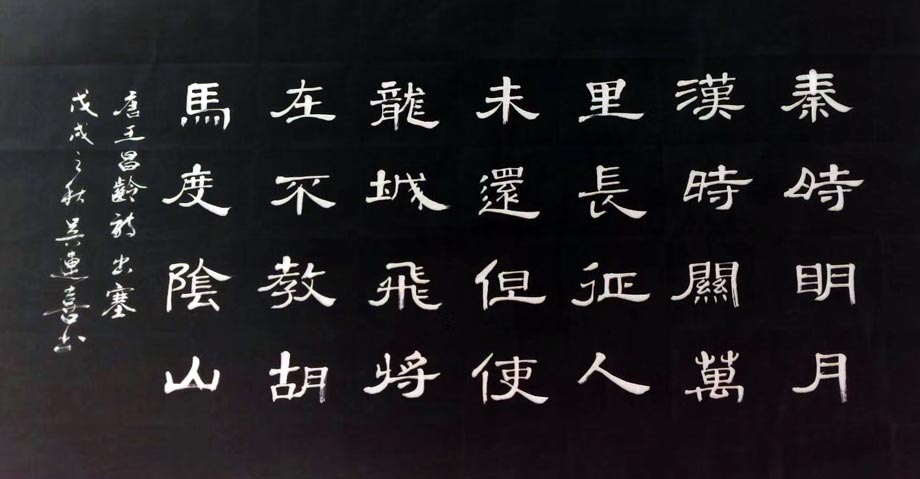 秦時明月
漢時關萬
里長征人
未還但使
龍城飛將
在不教胡
馬度陰山
唐王昌齡詩出塞
戊戌之秋吴連喜書